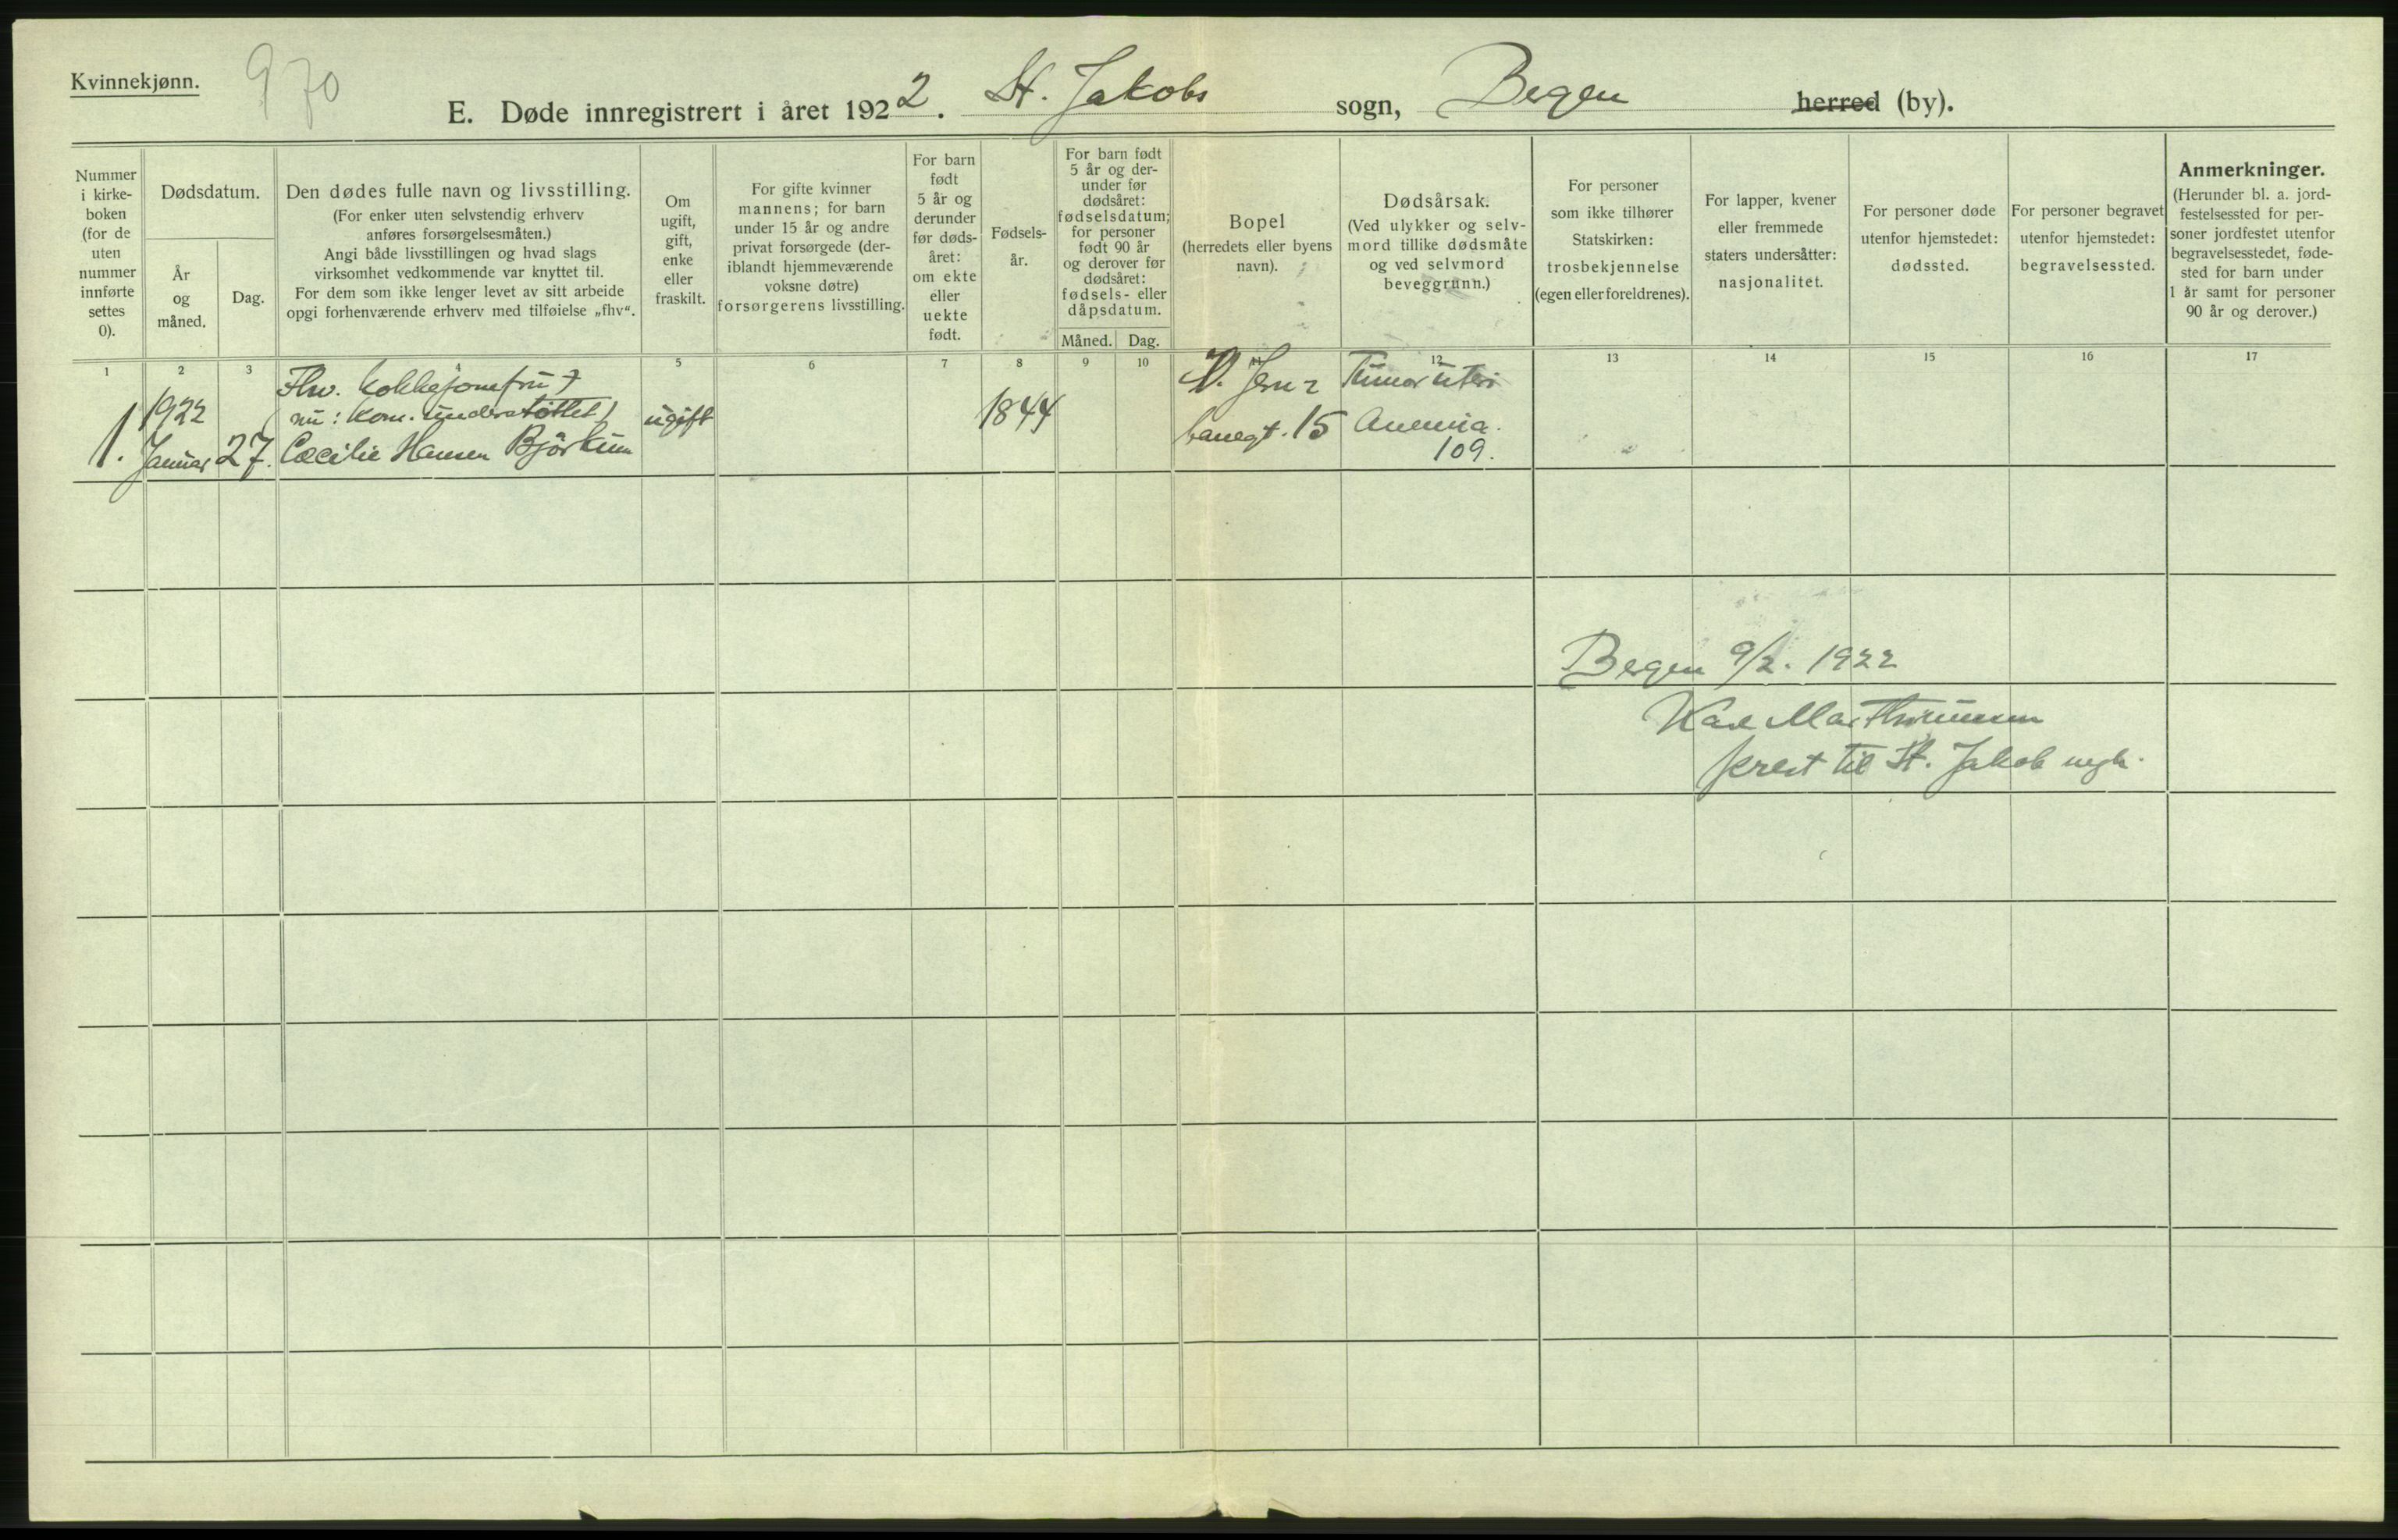 Kvinnekjønn.
970
E. Døde innregistrert i året 1922. St. Jakobs sogn, Bergen herred (by).
Nummer
i kirke-
boken
(for de
uten
nummer
innførte
settes
0).
Dødsdatum.
År
og
måned.
Dag.
Den dødes fulle navn og livsstilling.
(For enker uten selvstendig erhverv
anføres forsørgelsesmåten.)
Angi både livsstillingen og hvad slags
virksomhet vedkommende var knyttet til.
For dem som ikke lenger levet av sitt arbeide
opgi forhenværende erhverv med tilføielse „fhv“.
Om
ugift,
gift,
enke
eller
fraskilt.
For gifte kvinner
mannens; for barn
under 15 år og andre
privat forsørgede (der-
iblandt hjemmeværende
voksne døtre)
forsørgerens livsstilling.
For barn
født
5 år og
derunder
før døds-
året:
om ekte
eller
uekte
født.
Fødsels-
år.
For barn født
5 år og der-
under før
dødsåret:
fødselsdatum;
for personer
født 90 år
og derover før
dødsåret:
fødsels- eller
dåpsdatum.
Måned. Dag.
Bopel
(herredets eller byens
navn).
Dødsårsak.
(Ved ulykker og selv-
mord tillike dødsmåte
og ved selvmord
beveggrunn.)
For personer
som ikke tilhører
Statskirken:
trosbekjennelse
(egen eller foreldrenes).
For lapper, kvener
eller fremmede
staters undersåtter:
nasjonalitet.
For personer døde
utenfor hjemstedet:
dødssted.
For personer begravet
utenfor hjemstedet:
begravelsessted.
Anmerkninger.
(Herunder bl. a. jord-
festelsessted for per-
soner jordfestet utenfor
begravelsesstedet, føde-
sted for barn under
1 år samt for personer
90 år og derover.)
1 2 3 4 5 6 7 8 9 10 11 12 13 14 15 16 17
1.
1922
Januar
27.
Fhv. kokkejomfru
(nu: kom. understöttet)
Cæcilie Hansen Björkum
ugift
1844
Jern-
banegt. 15
Tumor uteri
Anemia.
109.
Bergen 9/2. 1922
Marthinussen
prest til St. Jakob megh.